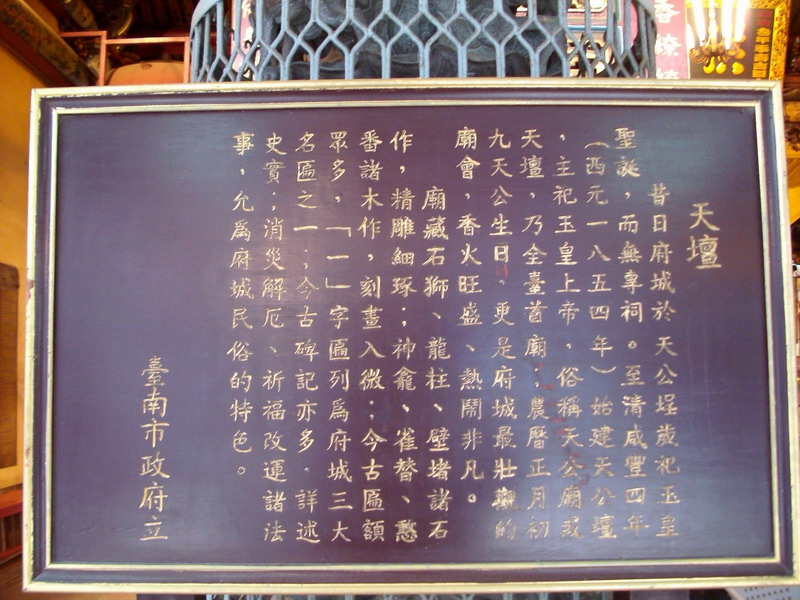 天壇
昔日府城於天公埕歲祀玉皇
聖誕，而無專祠。至清咸豐四年
（西元一八五四年）始建天公壇
，主祀玉皇上帝，俗稱天公廟或
天壇，乃全臺首廟；農曆正月初
九天公生日，更是府城最壯觀的
廟會，香火旺盛、熱鬧非凡。
廟藏石獅、龍柱、壁堵諸石
作，精雕細琢；神龕、雀替、憨
番諸木作，刻畫入微；今古匾額
眾多，「一」字匾列爲府城三大
名匾之一；今古碑記亦多，詳述
史實；消災解厄、祈福改運諸法
事，允爲府城民俗的特色。
臺南市政府立